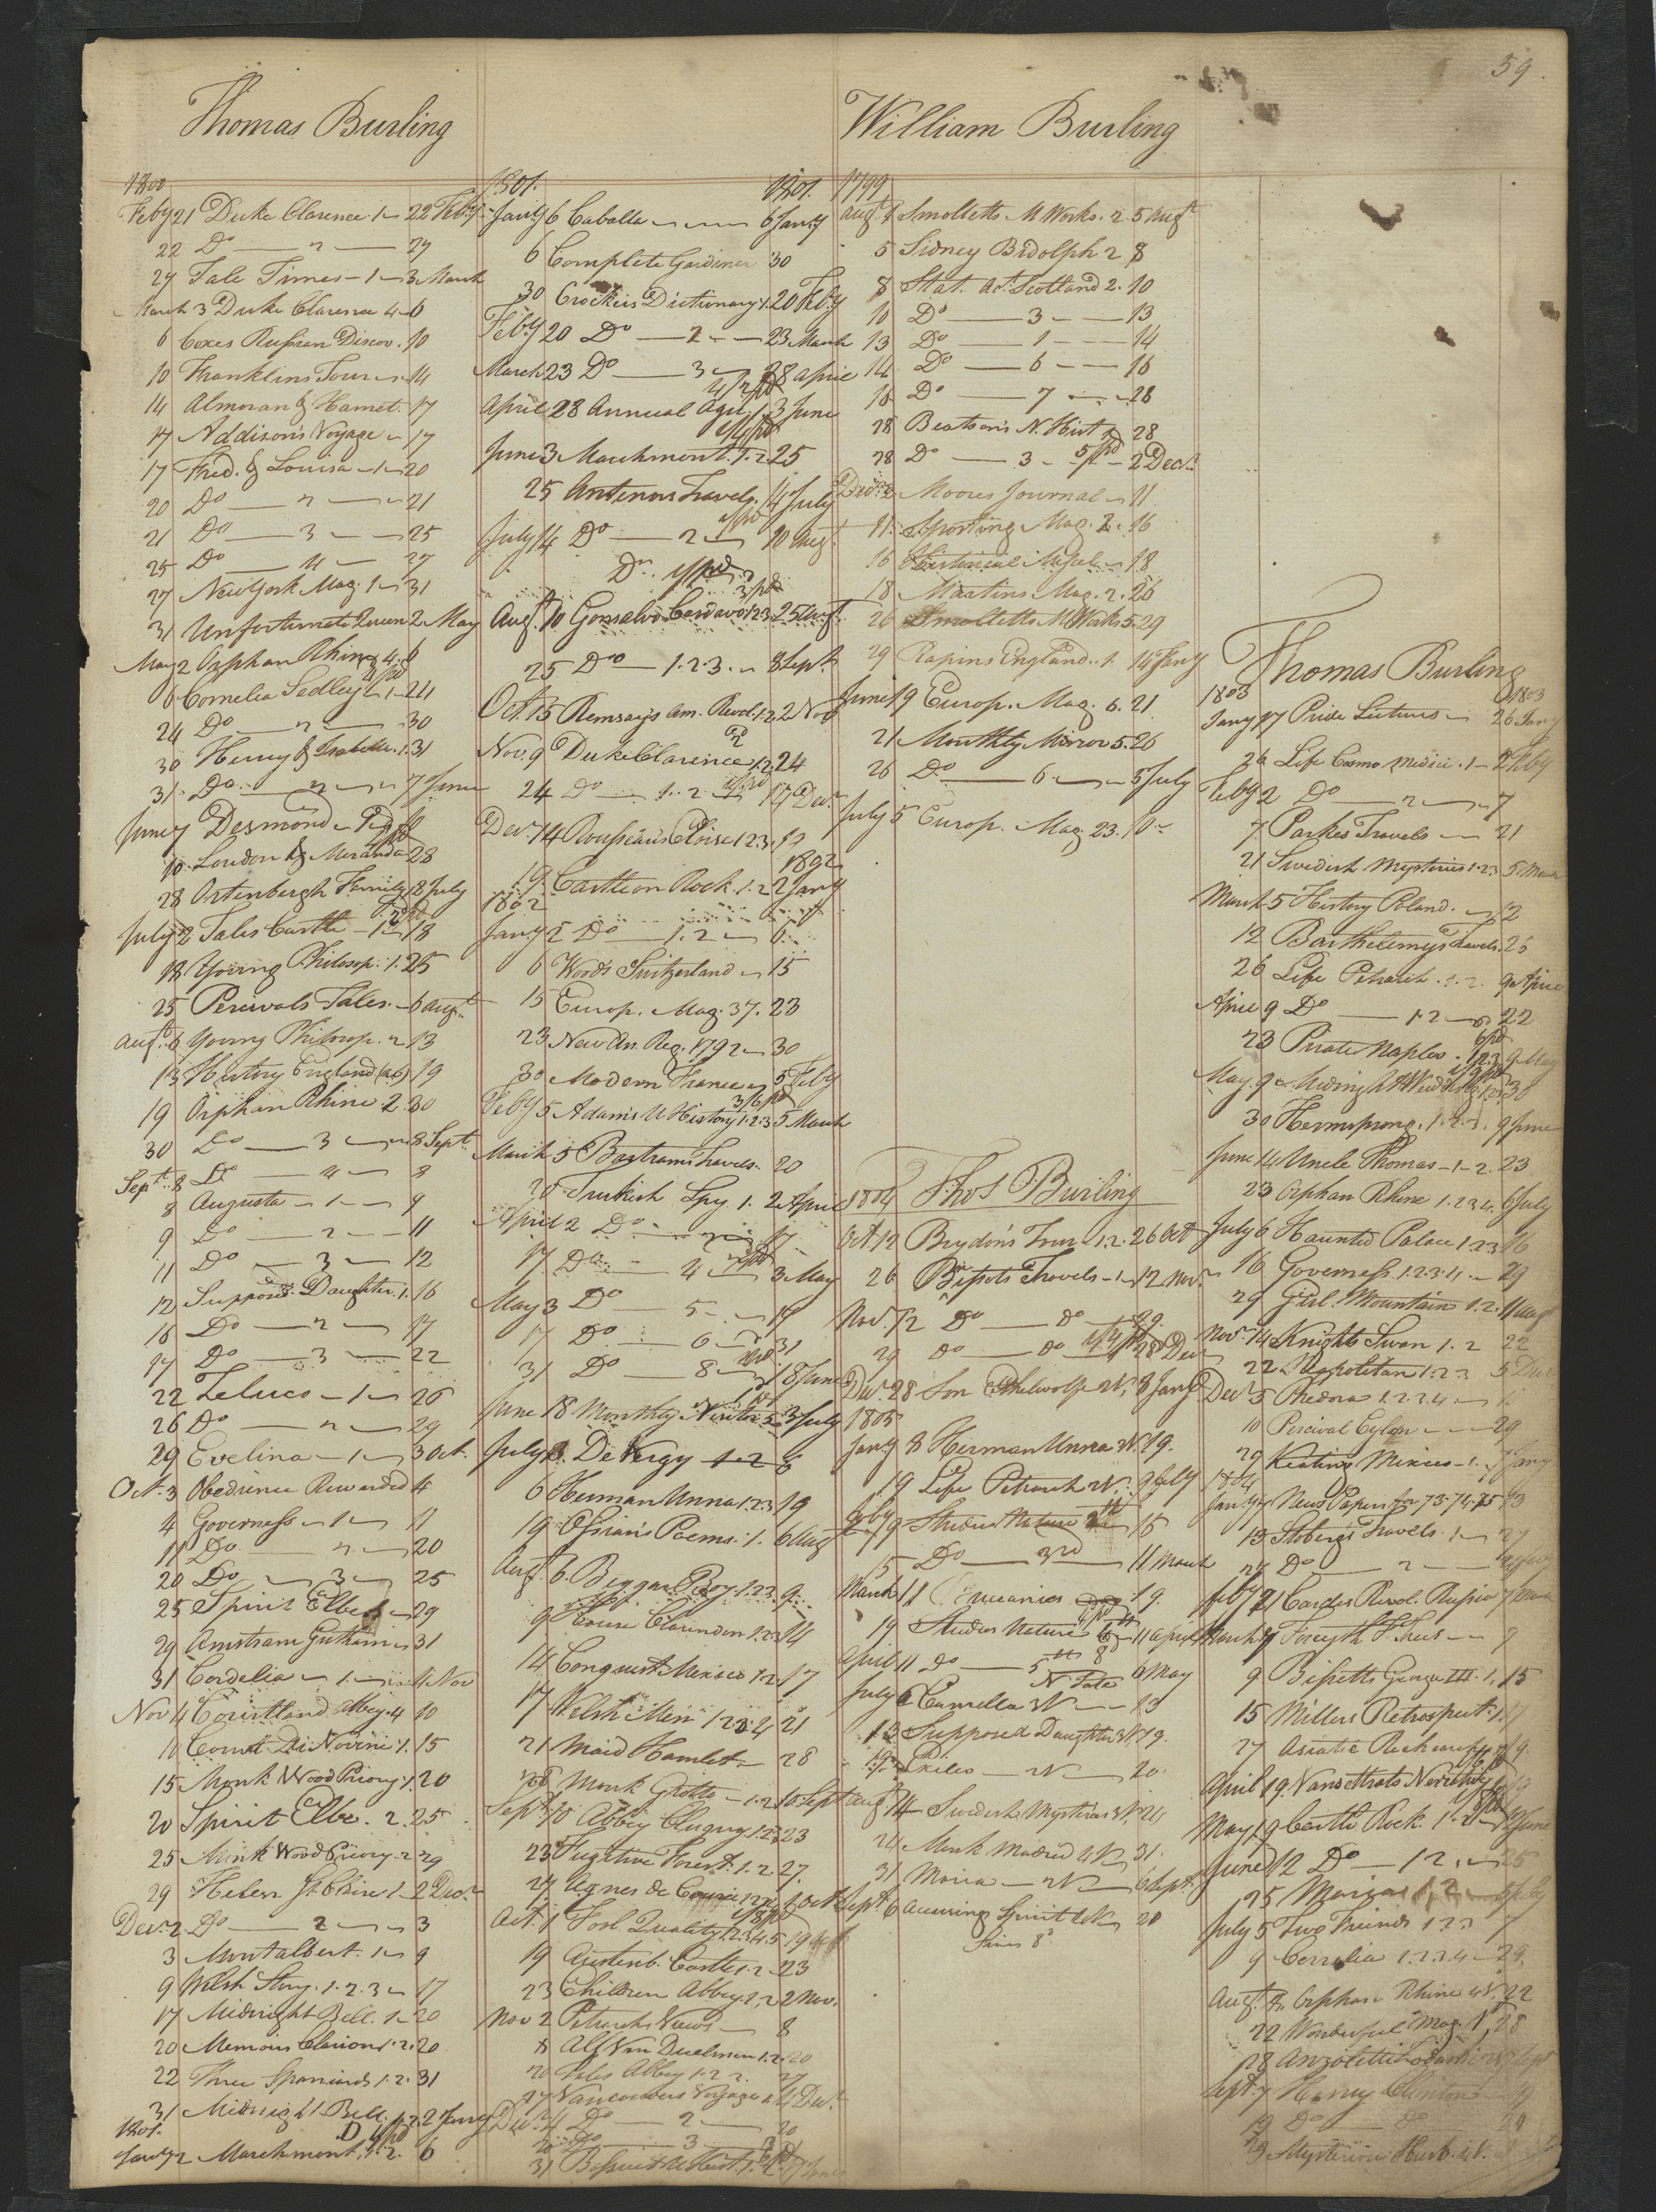 59.
Thomas Burling
1800
Feby 21 Duke Clarence 1 22 Feby
22 Do 2 27
27 Tale Times 1 3 March
March 3 Duke Clarence 4 6
6 Coxes Russian Discov. 10
10 Franklins Tour 14
14 Almoran & Hamet. 17
17 Addisons Voyage 17
17 Fred. & Louisa 1 20
20 Do 2 21
21 Do 3 25
25 Do 4 27
27 New York Mag. 1 31
31 Unfortunate Queen 2 May
May 2 Orphan Rhine 4. 6
6 Cornelia Sedley 1 24
24 Do 2 30
30 Henry & Isabella. 1. 31
31 Do 2 7 June
June 7 Desmond
10 Louden & Miranda 28
28 Ortenbergh Family 18 July
July 2 Tales Castle 1 18
18 Young Philosop. 1. 25
25 Percivals Tales. 6 Augt
Augt 6 Young Philosop. 2 13
13 History England 19
19 Orphan Rhine. 2. 30
30 Do 3 8 Sept
Sept. 8 Do 4 8
8 Augusta 1 9
9 Do 2 11
11 Do 3 12
12 Supposd. Daughter. 1. 16
16 Do 2 17
17 Do 3 22
22 Zeluco 1 26
26 Do 2 29
29 Evelina 1 3 Oct.
Oct. 3 Obedience Rewarded 4
4 Governess 1 11
11 Do 2 20
20 Do 3 25
25 Spirit Elbe 29
29 31
31 Cordelia 1 4 Nov
Nov 4 Courtland Abbey. 4 10
10 Count Di Novini 1. 15
15 Monk Wood Priory. 1. 20
20 Spirit Elbe. 2. 25
25 Monk Wood Priory. 2 29
29 Helen St Clair 1 2 Decr
Decr. 2 Do 2 3
3 Montalbert. 1 9
9 Welsh Story. 1. 2. 3 17
17 Midnight Bell. 1 20
20 Memoirs 1. 2. 20
22 Three Spaniards 1. 2. 31
31 Midnight Bell. 1. 2. 2 Jany
1801.
Jany 2 Marchmont. 1. 2. 6
1801. 1801.
Jany 6 Caballa 6 Jany
6 Complete Gardiner 30
30 Crockers Dictionary 1. 20 Feby
Feby 20 Do 2 23 March
March 23 Do 3 28 April
April 28 Annual Agri. 1. 3 June
June 3 Marchmont. 1. 2. 25
25 Antenors Travels. 14 July
July 14 Do 2 10 Augt
Do.
Augt. 10 Gonsalvo Cordavo 1.2.3. 25 Augt.
25 Do 1. 2. 3. 8 Sept
Oct. 15 Remsays Am. Revol. 1.2. 2 Nov
Nov. 9 Duke Clarence 1.2. 24
24 Do 1. 2 14 Decr
Decr. 14 Rousseaus Eloise 1.2.3.
1802
19 Castle on Rock. 1. 2 2 Jany
1802
Jany 2 Do 1. 2 6
6 Woods Switzerland 15
15 Europ. Mag. 37. 23
23 New An. Reg. 1792 30
30 Modern France 5 Feby
Feby 5 Adams U History 1.2.3 5 March
March 5 Bartrams Travels. 20
20 Turkish Spy 1. 2 April
April 2 Do 17
17 Do 4 3 May
May 3 Do 5 17
17 Do 6 31
31 Do 8 18 June
June 18 Monthly Visitor 5. 3 July
July 3. De Vergy 1. 2 6
6 Herman Unna 1.2.3 19
19 Ossians Poems. 1. 6 Aug
Augt. 6. Beggar Boy. 1.2.3. 9
9 House Clarendon 1.2.3 14
14 Conquest Mexico 1.2. 17
17 Welsh Men 1.2.3.4 21
21 Maid Hamlet 28
28 Monk Grotto 1.2. 10 Sept
Sept. 10 Abbey Clugny 1.2.3 23
23 Fugitive Forest. 1. 2. 27.
27 Agnes de Courci 1 Oct
Oct. 1 Fool Quality 1.2.3.4.5 19
19 Castle 1.2. 23
23 Children Abbey. 1. 2 2 Nov.
Nov 2 Petrarchs Views 8
8 Alf Von Duelmen 1.2. 20
20 Abbey 1. 2
27 Vancouvers Voyage 1 4 Decr
Decr. 4 Do 2 20
20 Do 3
31
William Burling
1799
Augt. 1 Smolletts M Works. 2. 5 Augt
5 Sidney Bidolph 2 8
8 Stat. Act. Scotland 2. 10
10 Do 3 13
13 Do 1 14
14 Do 6 16
16 Do 7 28
28 Beatsons N. Hist 28
28 Do 3 2 Decr
Decr. 2 Moores Journal 11
11 Sporting Mag. 2. 16
16 Historical 18
18 Martins Mag. 2. 26
26 Smolletts M Works 5. 29
29 Rapins England. 1. 14 Jany
June 19 Europ. Mag. 6. 21
21 Monthly Mirror 5. 26
26 Do 6 5 July
July 5 Europ. Mag. 23. 10
1804 Thos Burling
Oct. 12 Brydons Tour 1. 2. 26 Oct
26 Bissots Travels 1 12 Nov.
Nov. 12 Do Do 29.
29 Do Do 28 Dec
Decr 28 Son Ethelwolf 2V. 8 Jany
1805
Jany 8 Herman Unna 3V. 19.
19 Life Petrarch 2V. 9 Feby
Feby 9 Studies Nature 15
15 Do 3rd 11 March
March 11 19.
19 Studies Nature 11 April
April 11 Do 5th 6 May
July 6 Camilla 3V 13
13 Supposed Daughter 3V. 19.
19 Exiles 2V 20.
Augt 14 Swedish Mysteries 3V. 24
24 Monk Madrid 4V 31.
31 Maria 2V 6 Sept.
Sept. 6 20
Fines 8s
Thomas Burling
1803 1803
Jany 17 Price Lectures 26 Jany
26 Life Cosmo Medici. 1 2 Feby
Feby 2 Do 2 7
7 Parkes Travels 21
21 Swedish Mysteries 1.2.3 5 March
March 5 History Poland. 12
12 Barthelemys Travels. 26
26 Life Petrarch. 1. 2. 9 April
April 9 Do 1. 2 22
23 Pirate Naples. 1.2.3 9 May
May 9 30
30 Hermsprong. 1. 2. 3. 9 June
June 14 Uncle Thomas 1. 2. 23
23 Orphan Rhine 1.2.3.4. 6 July
July 6 Haunted Palace 1.2.3 16
16 Governess. 1.2.3.4. 29
29 Girl Mountain 1. 2. 11 Augt
Nov. 14 Knights Swan 1. 2 22
22 Neapolitan 1.2.3 5 Decr
Decr 5 Phedora 1.2.3.4 10
10 Percival Ceylon 29
29 Keatings Mexico 1. 7 Jany
1804
Jany 7 News Papers for 73. 74. 75 13
13 Stolbergs Travels. 1 27
27 Do 2
Feby 21 Revol. Russia 7 March
March 7 Forsyth F. Trees 9
9 Bissetts George III. 1. 15
15 Millers Retrospect. 1. 17
27 Asiatic Researches 19.
April 19. Narrative
May 19 Castle Rock. 1. 2 12 June
June 12 Do 1 2 25
25 Maria 1, 2 5 July
July 5 Two Friends 1 2 3 7
9 Corralia 1.2.3.4 29.
Augt. Orphan Rhine 4V. 22
22 Wonderful Mag. 1, 28
28
Sept. 7 Henry Clinton 19
19 Do Do 29
29 Mysterious Husb. 4V.